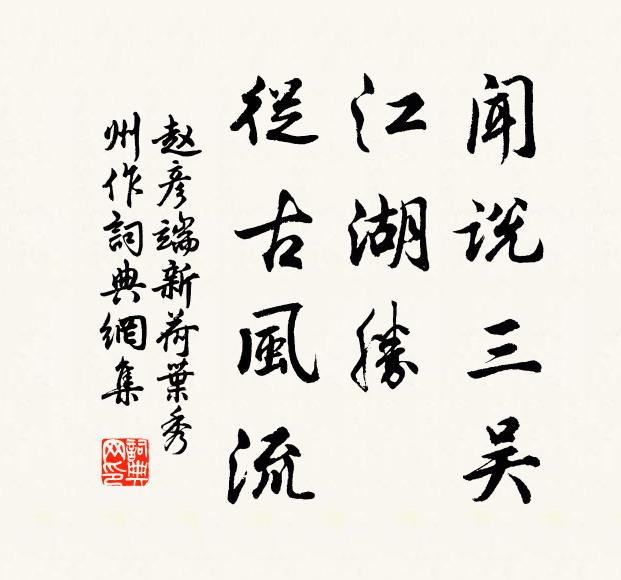 闻说三吴
江湖勝
從古風流
赵彦端新荷葉秀
州作詞典網集
詞典网印